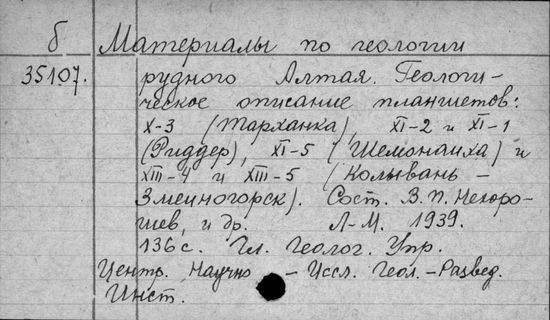 б Материалы по геологии
35107. рудного Алтая. Геологи-
ческое описание планшетов:
X-3 (Тарханка), XI-2 и XI-1
(Риддер), XI-5 (Шемонаиха) и
XIII-4 и XIII-5 (Колывань -
Змеиногорск). Сост. В.П. Нехоро-
шев, и др. Л-М. 1939.
136 с. Гл. Геолог. Упр.
Центр. Научно - Иссл. Геол.-Развед.
Инст.